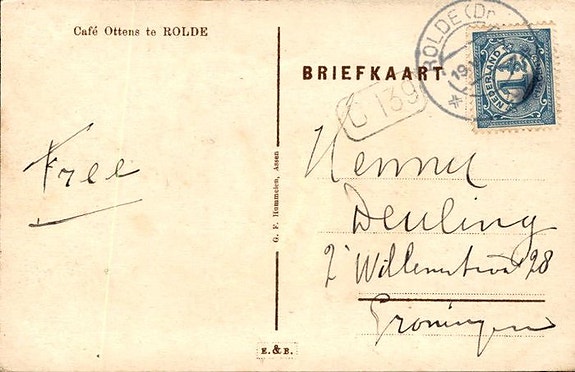 Café Ottens te ROLDE
BRIEFKAART
ROLDE (Dr
19
NEDERLAND
1
C 139
Free
Deuling
28
Groningen
G. F. Hummelen, Assen
E. & B.